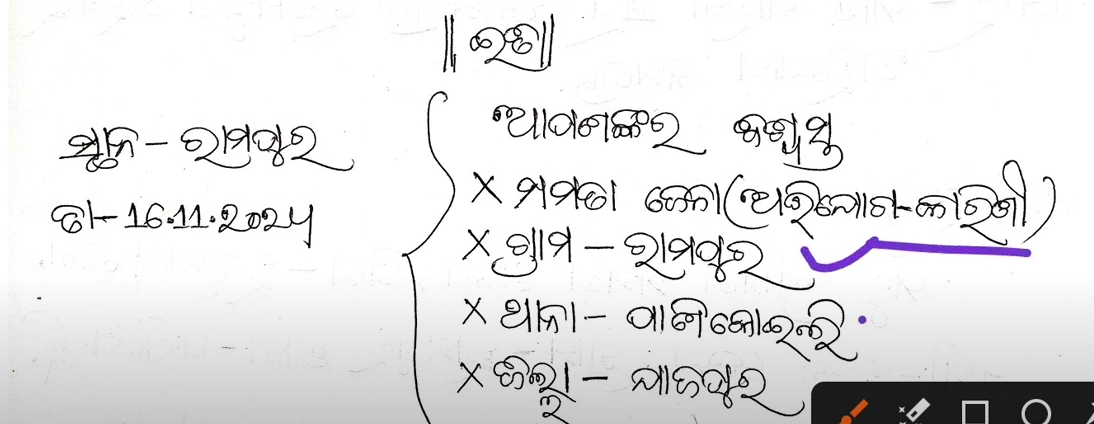 ॥ ଇତି ॥
ସ୍ଥାନ - ରାମପୁର
ତା - 16.11.2024
ଆପଣଙ୍କର ବଶ୍ୟସ୍ତ
X ମମତା ଜେନା (ଅଭିଯୋଗ-କାରିଣୀ)
X ଗ୍ରାମ - ରାମପୁର
X ଥାନା - ପାଣିକୋଇଲି
X ଜିଲ୍ଲା - ଯାଜପୁର